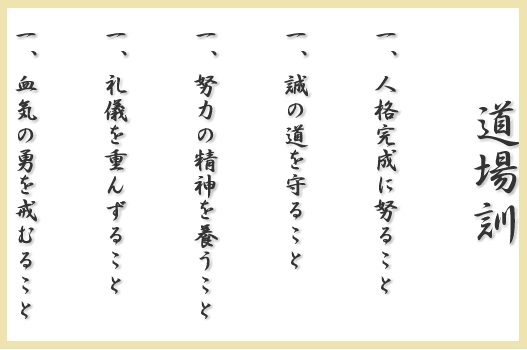 道場訓
一、人格完成に努ること
一、誠の道を守ること
一、努力の精神を養うこと
一、礼儀を重んずること
一、血気の勇を戒むること